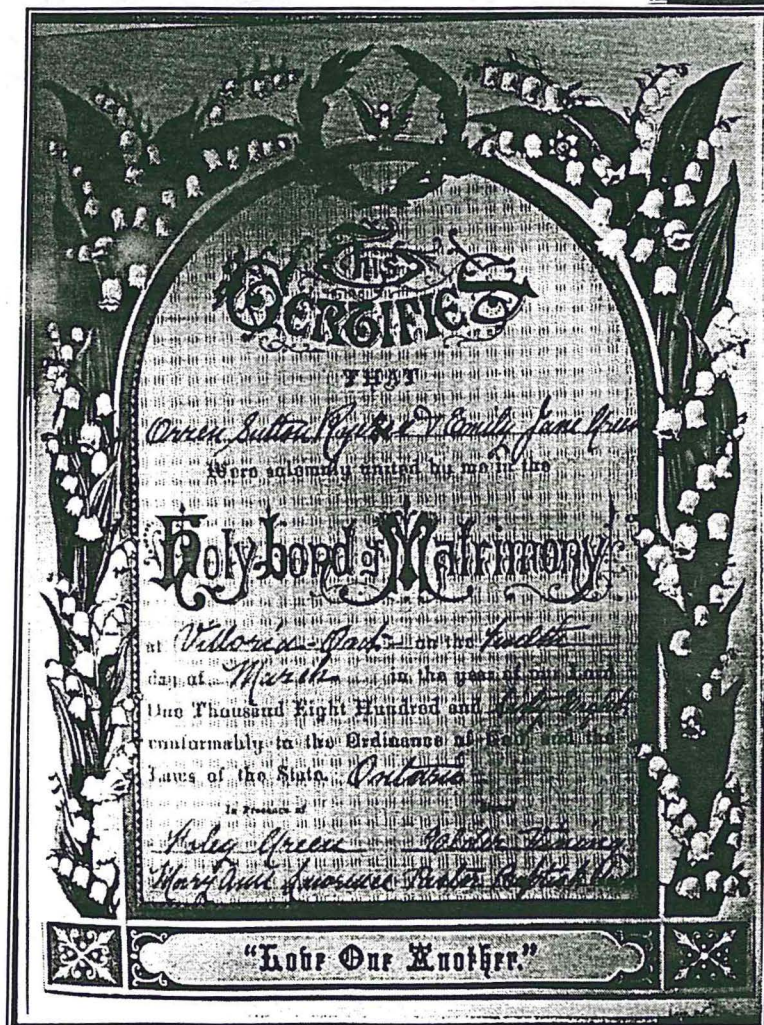 This
Certifies
THAT
Orren Sutton and Emily Jane Green
Were solemnly united by me in the
Holy-bond of Matrimony
at Vittoria on the twelfth
day of March in the year of our Lord
One Thousand Eight Hundred and Sixty Eight
conformably to the Ordinance of God and the
Laws of the State Ontario
In Presence of
Green
Mary Ann Pastor Baptist
"Love One Another."